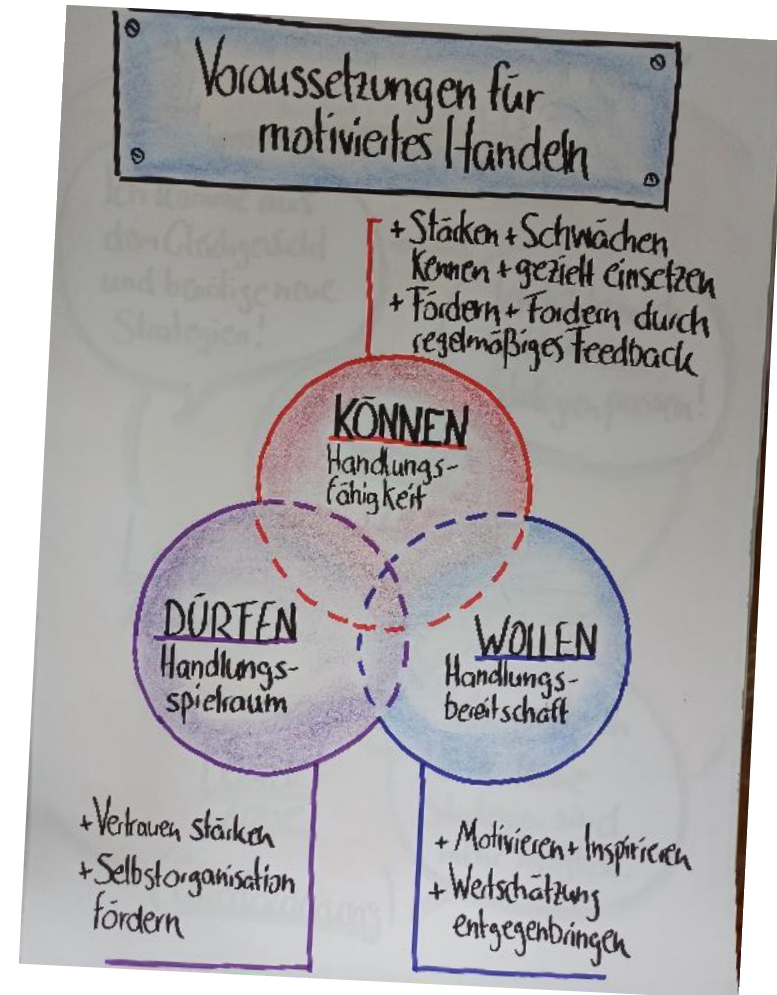 Voraussetzungen für
motiviertes Handeln
+ Stärken + Schwächen
kennen + gezielt einsetzen
+ Fördern + Fordern durch
regelmäßiges Feedback
KÖNNEN
Handlungs-
fähigkeit
DÜRFEN
Handlungs-
spielraum
WOLLEN
Handlungs-
bereitschaft
+ Vertrauen stärken
+ Selbstorganisation
fördern
+ Motivieren + Inspirieren
+ Wertschätzung
entgegenbringen
Ich komme aus
dem Gleichgewicht
und benötige neue
Strategien!